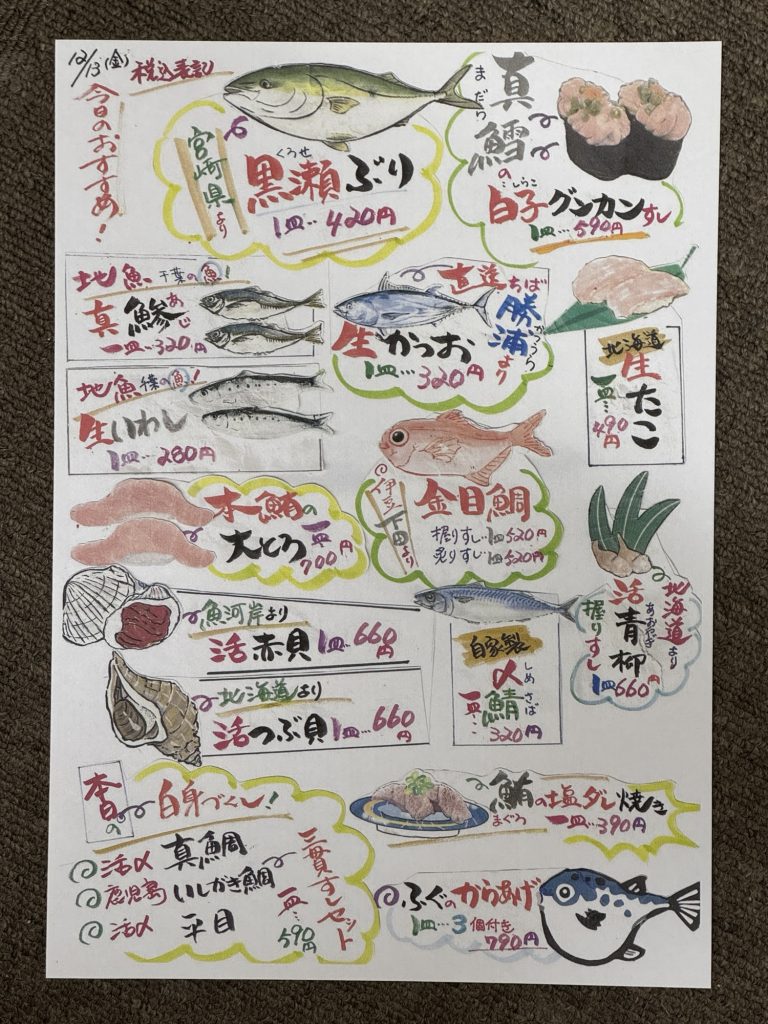 12/13(金)
税込表記
今日のおすすめ!
宮崎県より
くろせ
黒瀬ぶり
1皿…420円
まだら
真鱈の
こしらこ
白子グンカンすし
1皿…590円
地魚 千葉の魚!
真鯵
あじ
一皿…320円
直送ちば
勝浦より
かつうら
生かつお
1皿…320円
北海道
生たこ
一皿…490円
地魚 千葉の魚!
生いわし
1皿…280円
伊豆下田より
金目鯛
握りすし…1皿520円
炙りすし…1皿520円
本鮪の
大とろ
一皿700円
北海道より
活青柳
あおやぎ
握りすし
1皿660円
魚河岸より
活赤貝 1皿…660円
北海道より
活つぶ貝 1皿…660円
自家製
〆鯖
しめさば
一皿…320円
本日の
白身づくし!
活〆 真鯛
鹿児島 いしがき鯛
活〆 平目
三貫すしセット
一皿…590円
鮪の塩ダレ焼き
まぐろ
一皿…390円
ふぐのからあげ
1皿…3個付き
790円